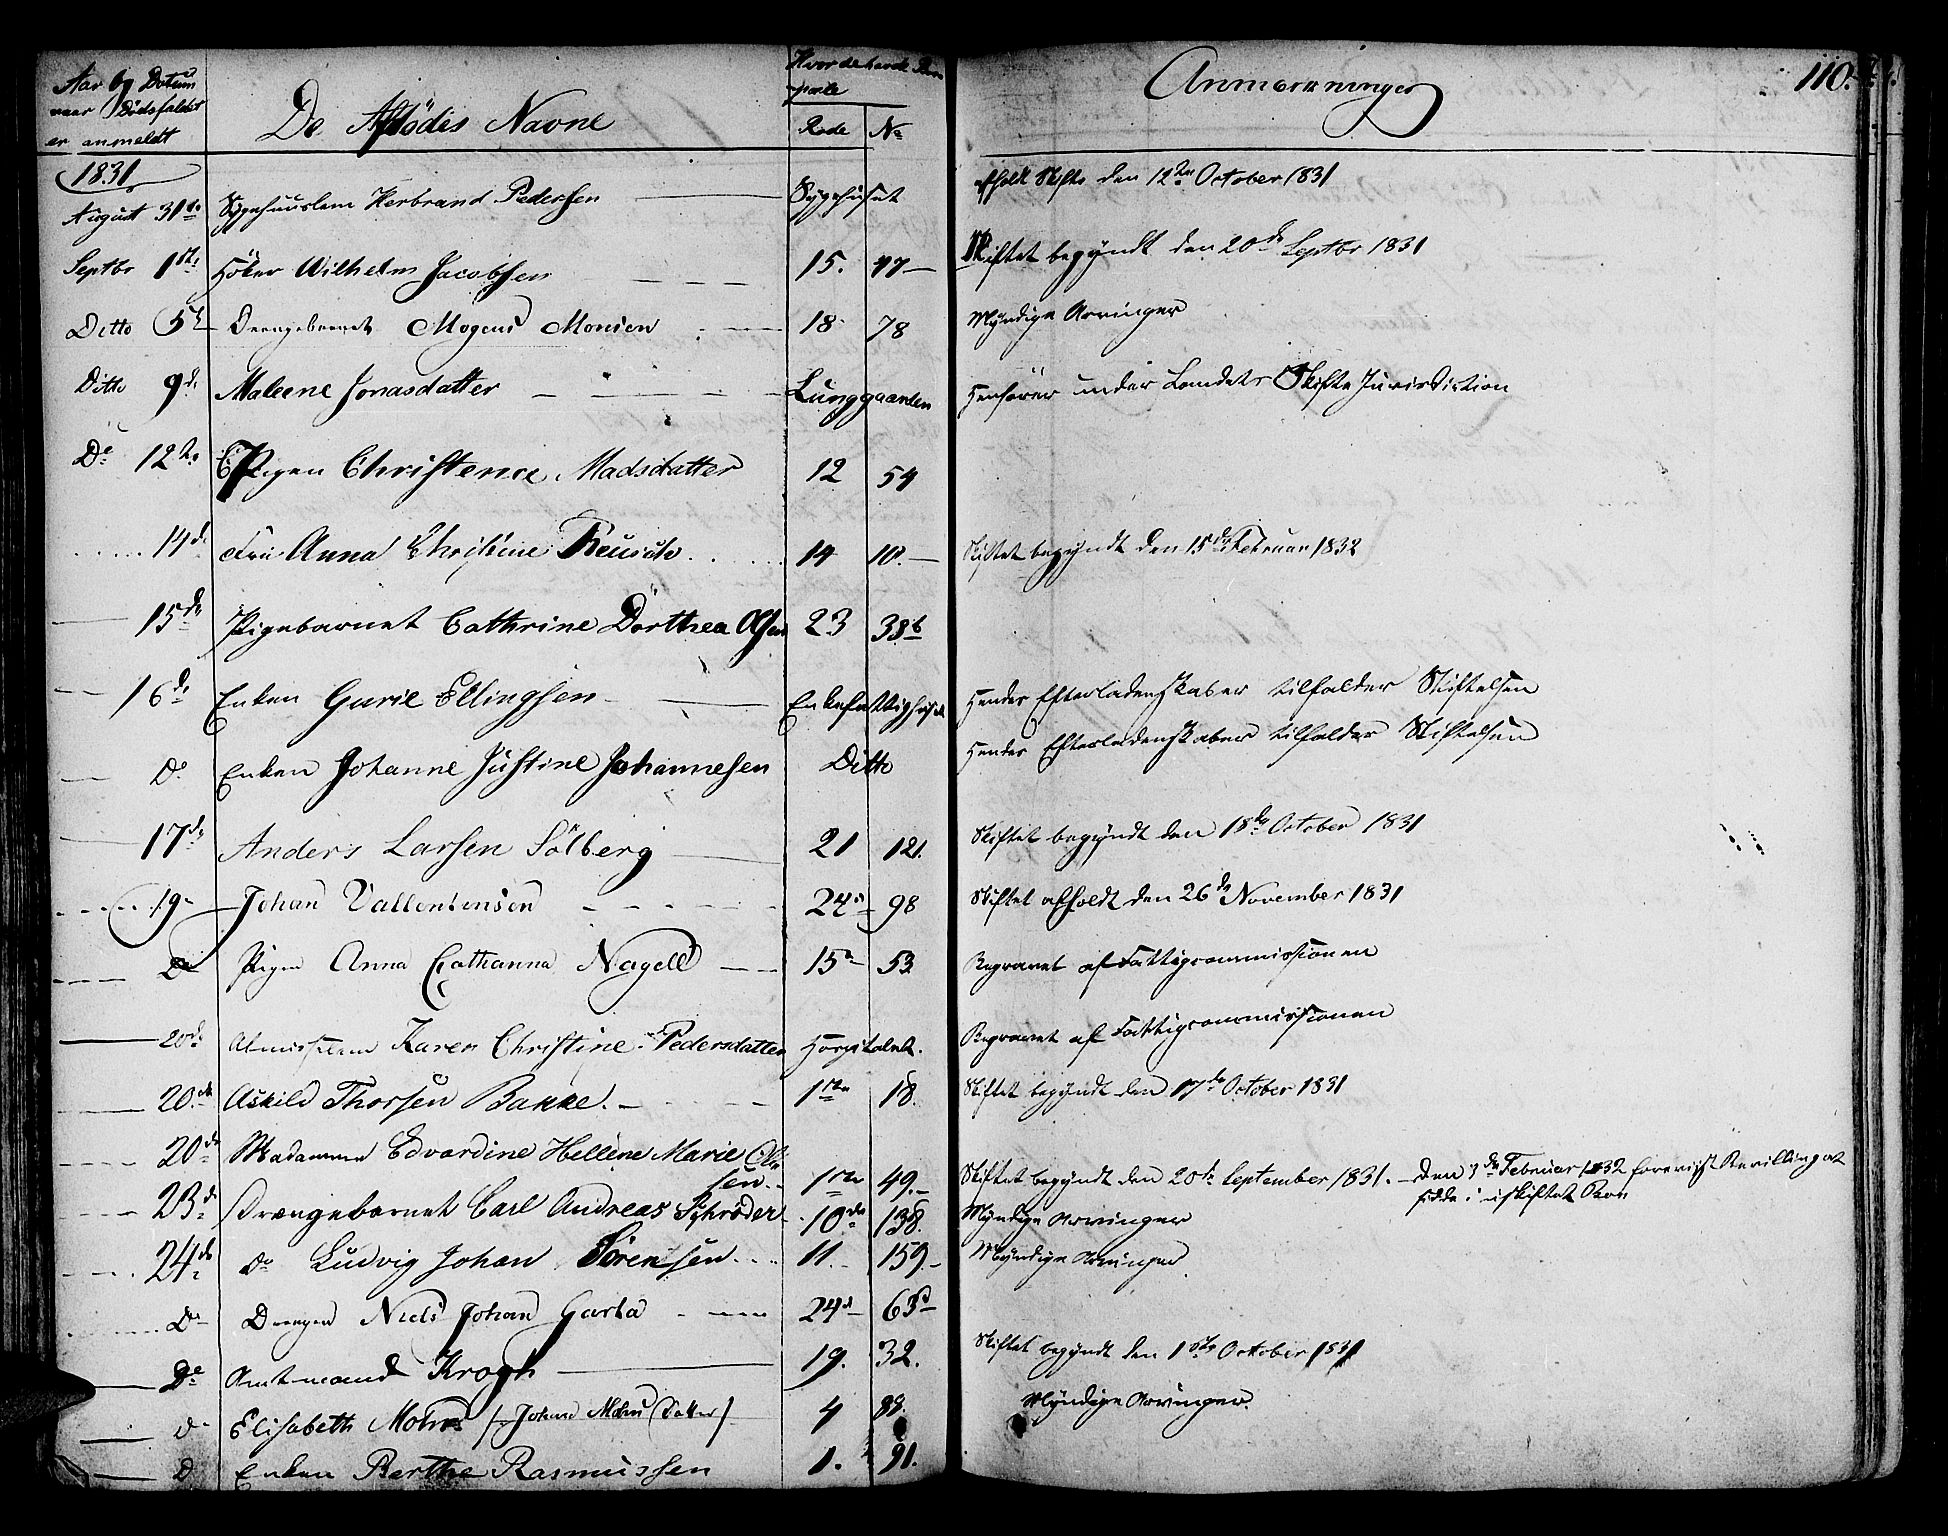 Aar og Datum
naar Dödsfaldet
er anmeldt
De Afdödes Navne
Hvor de havde Bo-
pæle
Rode No
Anmerkninger
110.
1831
August 31te Sygehuuslem Herbrand Pedersen Sygehuset afholdt Skifte den 12te October 1831
Septbr 1ste Höker Wilhelm Jacobsen 15. 47 Skiftet begyndt den 20de Septbr 1831
Ditto 5te Drengebarnet Mogens Monsen 18 78 Myndige Arvinger
Ditto 9de Maleene Jonasdatter Lunggaarden Henhörer under Landets Skifte Jurisdiction
Do 12te Pigen Christence Madsdatter 12 54
14de Fru Anna Christine Reusch 14 10. Skiftet begyndt den 15de Februar 1832
15de Pigebarnet Cathrine Dorthea Olsen 23 38b
16de Enken Gurie Ellingsen Enkefattighuset Hendes Efterladenskaber tilfalder Stiftelsen
Do Enken Johanne Justine Johannesen Ditto Hendes Efterladenskaber tilfalder Stiftelsen
17de Anders Larsen Sölberg 21 121. Skiftet begyndt den 18de October 1831
19 Johan Vallentinsen 24de 98 Skiftet afholdt den 26de November 1831
Do Pigen Anna Cathanna Nagell 15de 53 Begravet af Fattigcommissionen
20de Almisselem Karen Christine Pedersdatter Hospitalet. Begravet af Fattigcommissionen
20de Askild Thorsen Bakke. 1ste 18. Skiftet begyndt den 17de October 1831
20de Madamme Edvardine Hellene Marie Ol-
sen 1ste 49. Skiftet begyndt den 20de September 1831. Den 7de Februar 1832 foreviist Bevilling at
sidde i uskiftet Boe
23de Drengebarnet Carl Andreas Schröder 10de 138. Myndige Arvinger
24de Do Ludvig Johan Sörensen 11. 159. Myndige Arvinger
Do Drengen Niels Johan Garta 24de 63d
Do Amtmand Krogh 19. 32. Skiftet begyndt den 1ste October 1831
Do Elisabeth Mohn /Johan Mohns Datter/ 4 88. Myndige Arvinger.
D Enken Berthe Rasmussen 1. 91.